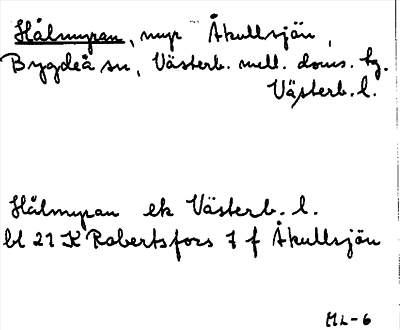 Hålmyran, myr Åkullsjön,
Bygdeå sn, Västerb. mell. doms. tg.
Västerb. l.
Hålmyran ek Västerb. l.
bl 21 K Robertsfors 7 f Åkullsjön
ML-6